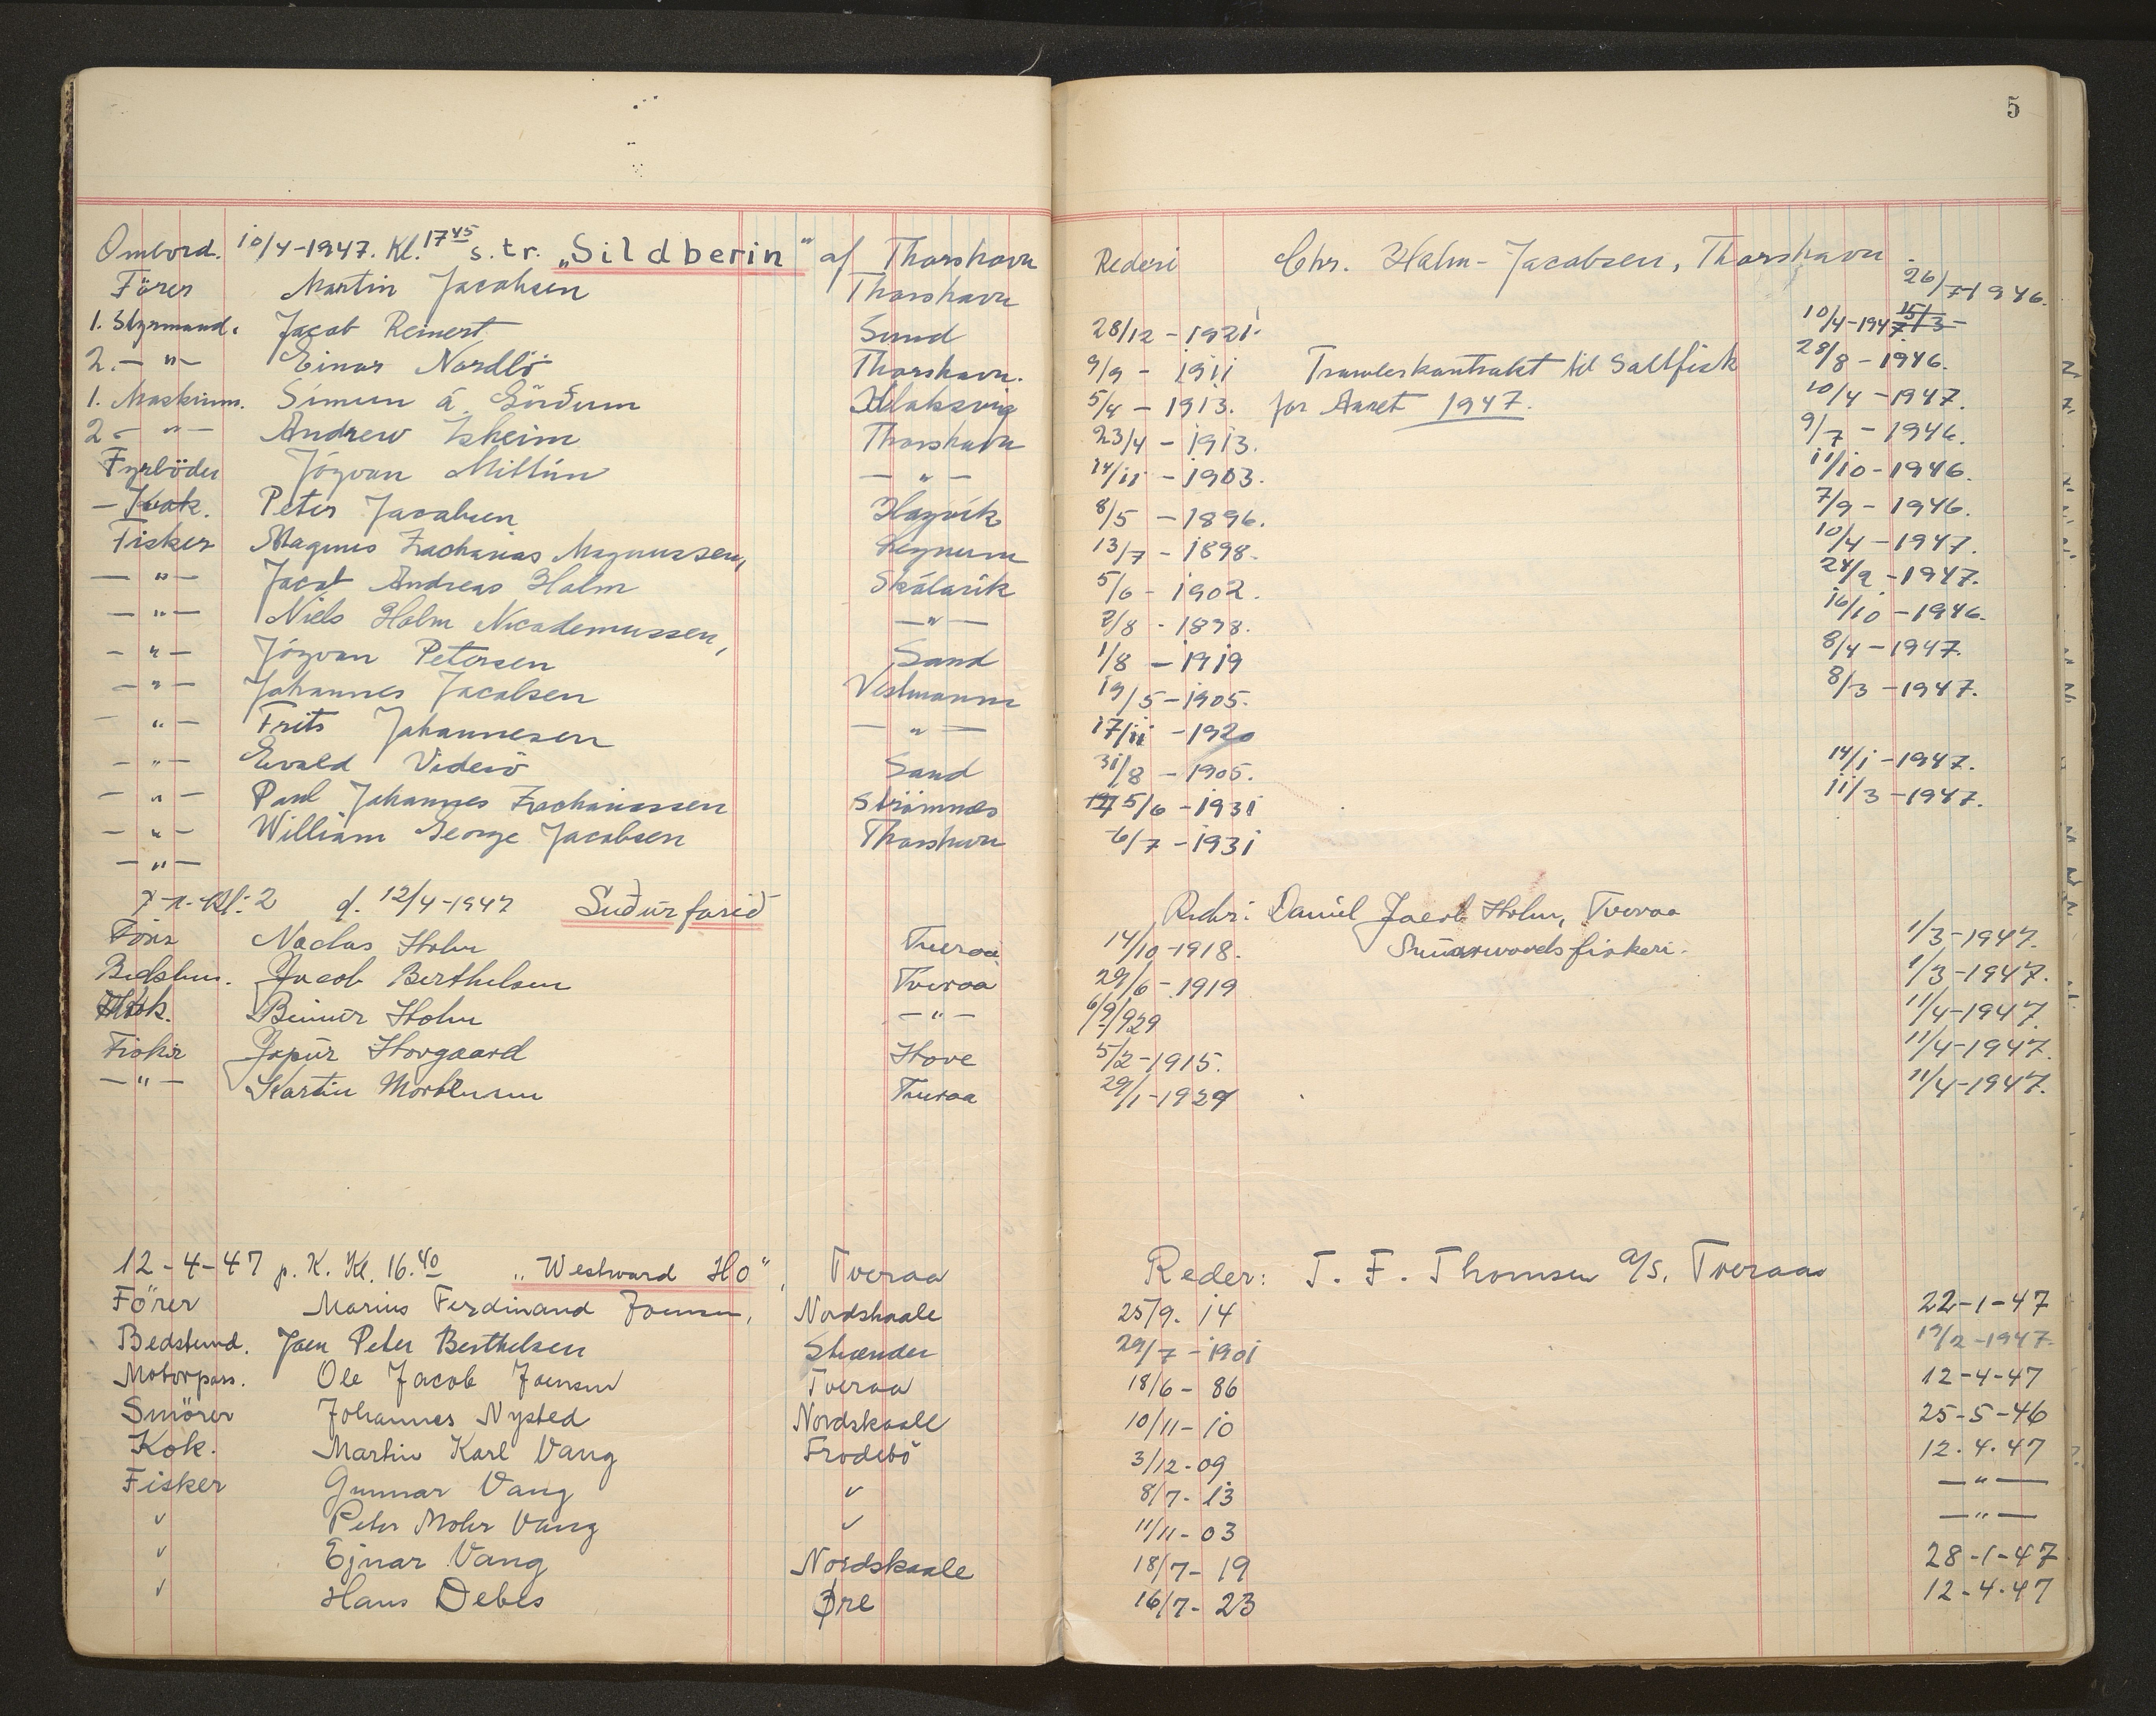 5
Ombord. 10/4-1947. Kl. 17 45 s.tr. „Sildberin" af Thorshavn Rederi Chr. Holm-Jacobsen, Thorshavn.
Förer Martin Jacobsen Thorshavn 26/7-1946.
1. Styrmand. Jacob Reinert Sund 28/12 - 1921. 10/4-1947
2. — " — Einar Nordlö Thorshavn. 9/9 - 1911 Trawlerkontrakt til Saltfisk 28/8 - 1946.
1. Maskinm. Símun á Görðum Klaksvig 5/4 - 1913. for Aaret 1947. 10/4 - 1947.
2. — " — Andrew Isheim Thorshavn 23/4 - 1913. 9/7 - 1946.
Fyrböder Jógvan Mittún — " — 14/11 - 1903. 11/10 - 1946.
— Kok. Peter Jacobsen Hoyvík 8/5 - 1896. 7/9 - 1946.
Fisker Magnus Zacharias Magnussen, Leynum 13/7 - 1898. 10/4 - 1947.
— " — Jacob Andreas Holm Skálavík 5/6 - 1902. 24/2 - 1947.
— " — Niels Holm Nicodemussen, — " — 2/8 - 1898. 16/10 - 1946.
— " — Jógvan Petersen Sand 1/8 - 1919 8/4 - 1947.
— " — Johannes Jacobsen Vestmanna 19/5 - 1905. 8/3 - 1947.
— " — Frits Johannesen — " — 17/11 - 1920
— " — Evald Viderö Sand 31/8 - 1905. 14/1 - 1947.
— " — Paul Johannes Zachariassen Strömnæs 5/6 - 1931 11/3 - 1947.
— " — William George Jacobsen Thorshavn 6/7 - 1931
— " —
Kl. 2 d. 12/4-1947 Suðurfarið Reder: Daniel Jacob Holm, Tveraa
Förer Naclas Holm Tveraa 14/10-1918. Snurrevaadsfiskeri. 1/3-1947.
Bedstm. Jacob Berthelsen Tveraa 29/6-1919 1/3-1947.
Kok. Beinur Holm — " — 6/9/1929 11/4-1947.
Fisker Jógvan Hovgaard Hove 5/2-1915. 11/4-1947.
— " — Martin Mortensen Tveraa 29/1-1929 11/4-1947.
12-4-47 p. K. Kl. 16.40 „Westward Ho", Tveraa Reder: T. F. Thomsen A/S. Tveraa
Förer Marius Ferdinand Joensen, Nordskaale 25/9. 14 22-1-47
Bedstemd. Joen Peter Berthelsen Strænder 29/7 - 1901 19/2-1947.
Motorpass. Ole Jacob Joensen Tveraa 18/6 - 86 12-4-47
Smörer Johannes Nysted Nordskaale 10/11 - 10 25-5-46
Kok. Martin Karl Vang Frodebö 3/12-09 12.4.47
Fisker Gunnar Vang v 8/7- 13 — " —
v Peter Mohr Vang v 11/11-03 — " —
v Ejnar Vang Nordskaale 18/7- 19 28-1-47
v Hans Debes Øre 16/7- 23 12-4-47